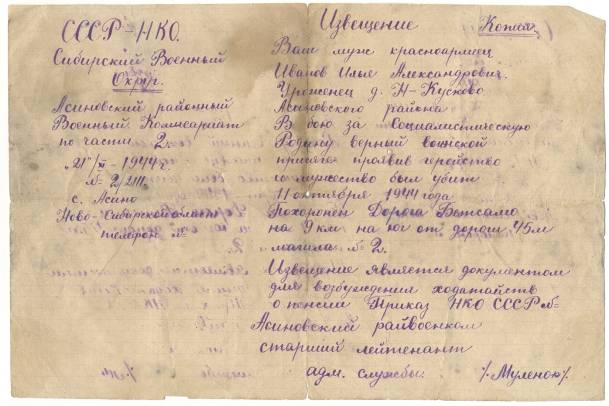 СССР-НКО.
Сибирский Военный
Округ.
Асиновский районный
Военный Комисариат
по части 2.
"21"/XI-1944 г.
№ 2/211.
с. Асино
Ново-Сибирской области
телефон №
Извещение Копия.
Ваш муж красноармеец
Иванов Илья Александрович.
Уроженец д. Н-Кусково
Асиновского района
В бою за Социалистическую
Родину верный воинской
присяге проявив геройство
и мужество был убит
11 октября 1944 года
Похоронен Дорога Петсамо
на 9 км на юг от дороги 45 м
могила № 2.
Извещение является документом
для возбуждения ходатайств
о пенсии Приказ НКО СССР №
Асиновский райвоенком
старший лейтенант
адм. службы: /. Муленок/.